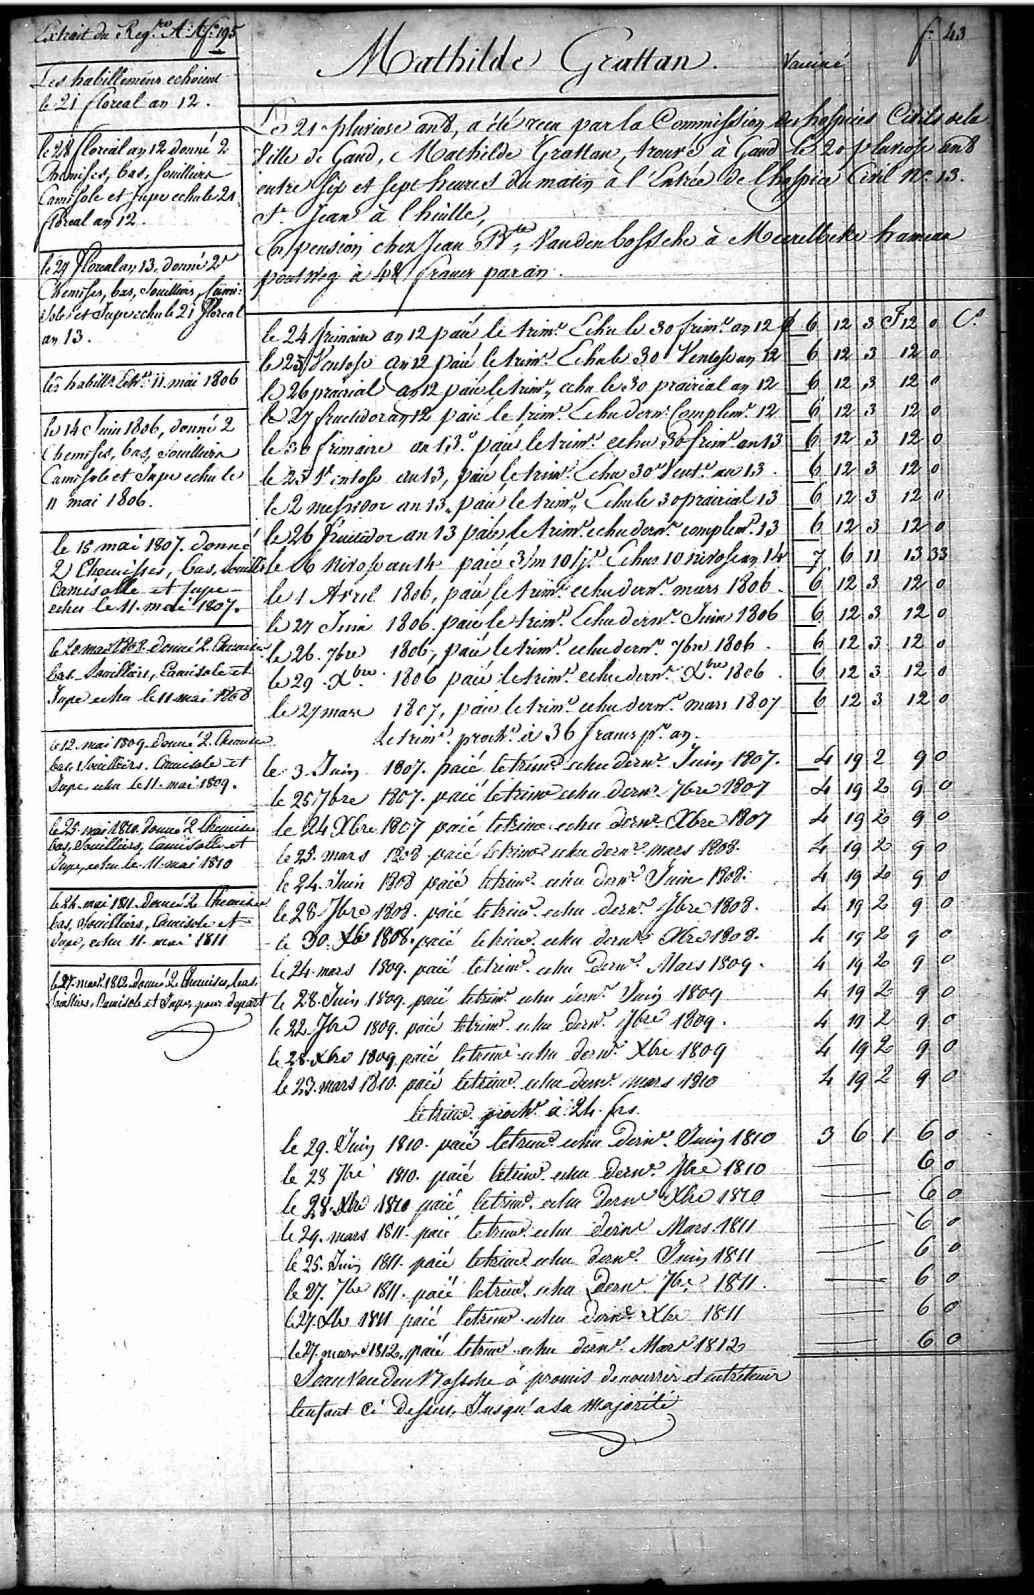 Extrait du Reg.re A. f.o 195
f. 43
Mathilde Grattan.
Vacciné
Les habillemens echoient
le 21 floreal an 12.
le 28 floreal an 12 donné 2
Chemises, bas, souilliers
Camisole et Jupe echu le 21
floreal an 12.
le 27 floreal an 13, donné 2
Chemises, bas, souilliers, Cami-
sole et Jupe echu le 21 floreal
an 13.
les habill. 11 mai 1806
le 14 Juin 1806, donné 2
Chemises, bas, souilliers
Camisole et Jupe echu le
11 mai 1806.
le 18 mai 1807. donné
2 Chemisses, bas, souilliers
Camisolle et jupe
echu le 11 mai 1807.
le 20 mai 1808 donné 2 Chemises
bas Souilliers, Camisole et
Jupe echu le 11 mai 1808
le 12 mai 1809 donné 2 Chemises
bas, souilliers, Camisole et
Jupe echu le 11 mai 1809.
le 25 mai 1810 donné 2 Chemises
bas, Souilliers, Camisolle et
Jupe, echu le 11 mai 1810
le 24 mai 1811 donné 2 Chemises
bas, Souilliers, Camisole et
Jupe, echu 11 mai 1811
le 27 mars 1812 donné 2 Chemises, bas,
souilliers, Camisole et Jupe, pour depart
Le 21 pluviose an 8, a été recu par la Commission des hospices Civils de la
Ville de Gand, Mathilde Grattan, trouvé à Gand le 20 pluviose an 8
entre six et sept heures du matin à l'Entrée de l'hospice Civil No. 13.
St. Jean à l'huille,
En pension chez Jean Bte. Vandenbossche à Meirelbeke hameau
à 48 francs par an.
le 24 frimaire an 12 paié le trimre. Echu le 30 frimre. an 12 £ 6 12 3 F 12 0 Cs
le 25 Ventose an 12 paié le trimre. Echu le 30 Ventose an 12 6 12 3 12 0
le 26 prairial an 12 paié le trimre. echu le 30 prairial an 12 6 12 3 12 0
le 27 fructidor an 12 paié le trimre. Echu dernr. Complemre. 12 6 12 3 12 0
le 30 frimaire an 13 paié le trimre. echu 30 frimre. an 13 6 12 3 12 0
le 25 Ventose an 13, paié le trimre. Echu 30 Ventre. an 13. 6 12 3 12 0
le 2 messidor an 13, paié le trimre. Echu le 30 prairial 13 6 12 3 12 0
le 26 fructidor an 13 paié le trimre. echu dernr. complemre. 13 6 12 3 12 0
le 6 Nivose an 14 paié 3/m 10 js. Echus 10 nivose an 14 7 6 11 13 33
le 1 Avril 1806, paié le trimre. echu dernr. mars 1806 6 12 3 12 0
le 27 Juin 1806. paié le trimre. Echu dernr. Juin 1806 6 12 3 12 0
le 26. 7bre 1806, paié le trimre. echu dernr. 7bre 1806. 6 12 3 12 0
le 29 Xbre. 1806 paié le trimre. echu dernr. Xbre 1806 6 12 3 12 0
le 27 mars 1807, paié le trimre. echu dernr. mars 1807 6 12 3 12 0
le trimre. prochn. à 36 francs pr. an.
le 3 Juin 1807. paié le trimre echu dernr. Juin 1807. 4 19 2 9 0
le 25 7bre 1807. paié le trimre echu dernr. 7bre 1807 4 19 2 9 0
le 24 Xbre 1807 paié le trimre echu dernr. Xbre 1807 4 19 2 9 0
le 25. mars 1808 paié le trimre echu dernr. mars 1808. 4 19 2 9 0
le 24. Juin 1808 paié le trimre. echu dernr. Juin 1808. 4 19 2 9 0
le 28. 7bre 1808. paié le trimre. echu dernr. 7bre 1808. 4 19 2 9 0
le 30. Xbre 1808. paié le trimre. echu dernr. Xbre 1808. 4 19 2 9 0
le 24 mars 1809. paié le trimre. echu dernr. Mars 1809. 4 19 2 9 0
le 28. Juin 1809. paié le trimre. echu dernr. Juin 1809 4 19 2 9 0
le 22. 7bre 1809. paié le trimre. echu dernr. 7bre 1809. 4 19 2 9 0
le 28. Xbre 1809 paié le trimre echu dernr. Xbre 1809 4 19 2 9 0
le 23. mars 1810. paié le trimre. echu dernr. mars 1810 4 19 2 9 0
le trimre. prochn. à 24 frs.
le 29. Juin 1810. paié le trimre echu dernr. Juin 1810 3 6 1 6 0
le 28 7bre 1810. paié le trimre. echu dernr. 7bre 1810 6 0
le 28. Xbre 1810 paié le trimre. echu dernr Xbre 1810 6 0
le 29. mars 1811. paié le trimre. echu dernr Mars. 1811 6 0
le 25. Juin 1811. paié le trimre echu dernr. Juin 1811 6 0
le 27. 7bre 1811. paié le trimre. echu dernr 7bre 1811. 6 0
le 27. Xbre 1811 paié le trimre. echu dernr. Xbre 1811 6 0
le 27. mars 1812. paié le trimre. echu dernr. Mars 1812 6 0
Jean Van den Bossche a promis de nourrir et entretenir
l'enfant ci dessus, Jusqu'a sa majorité